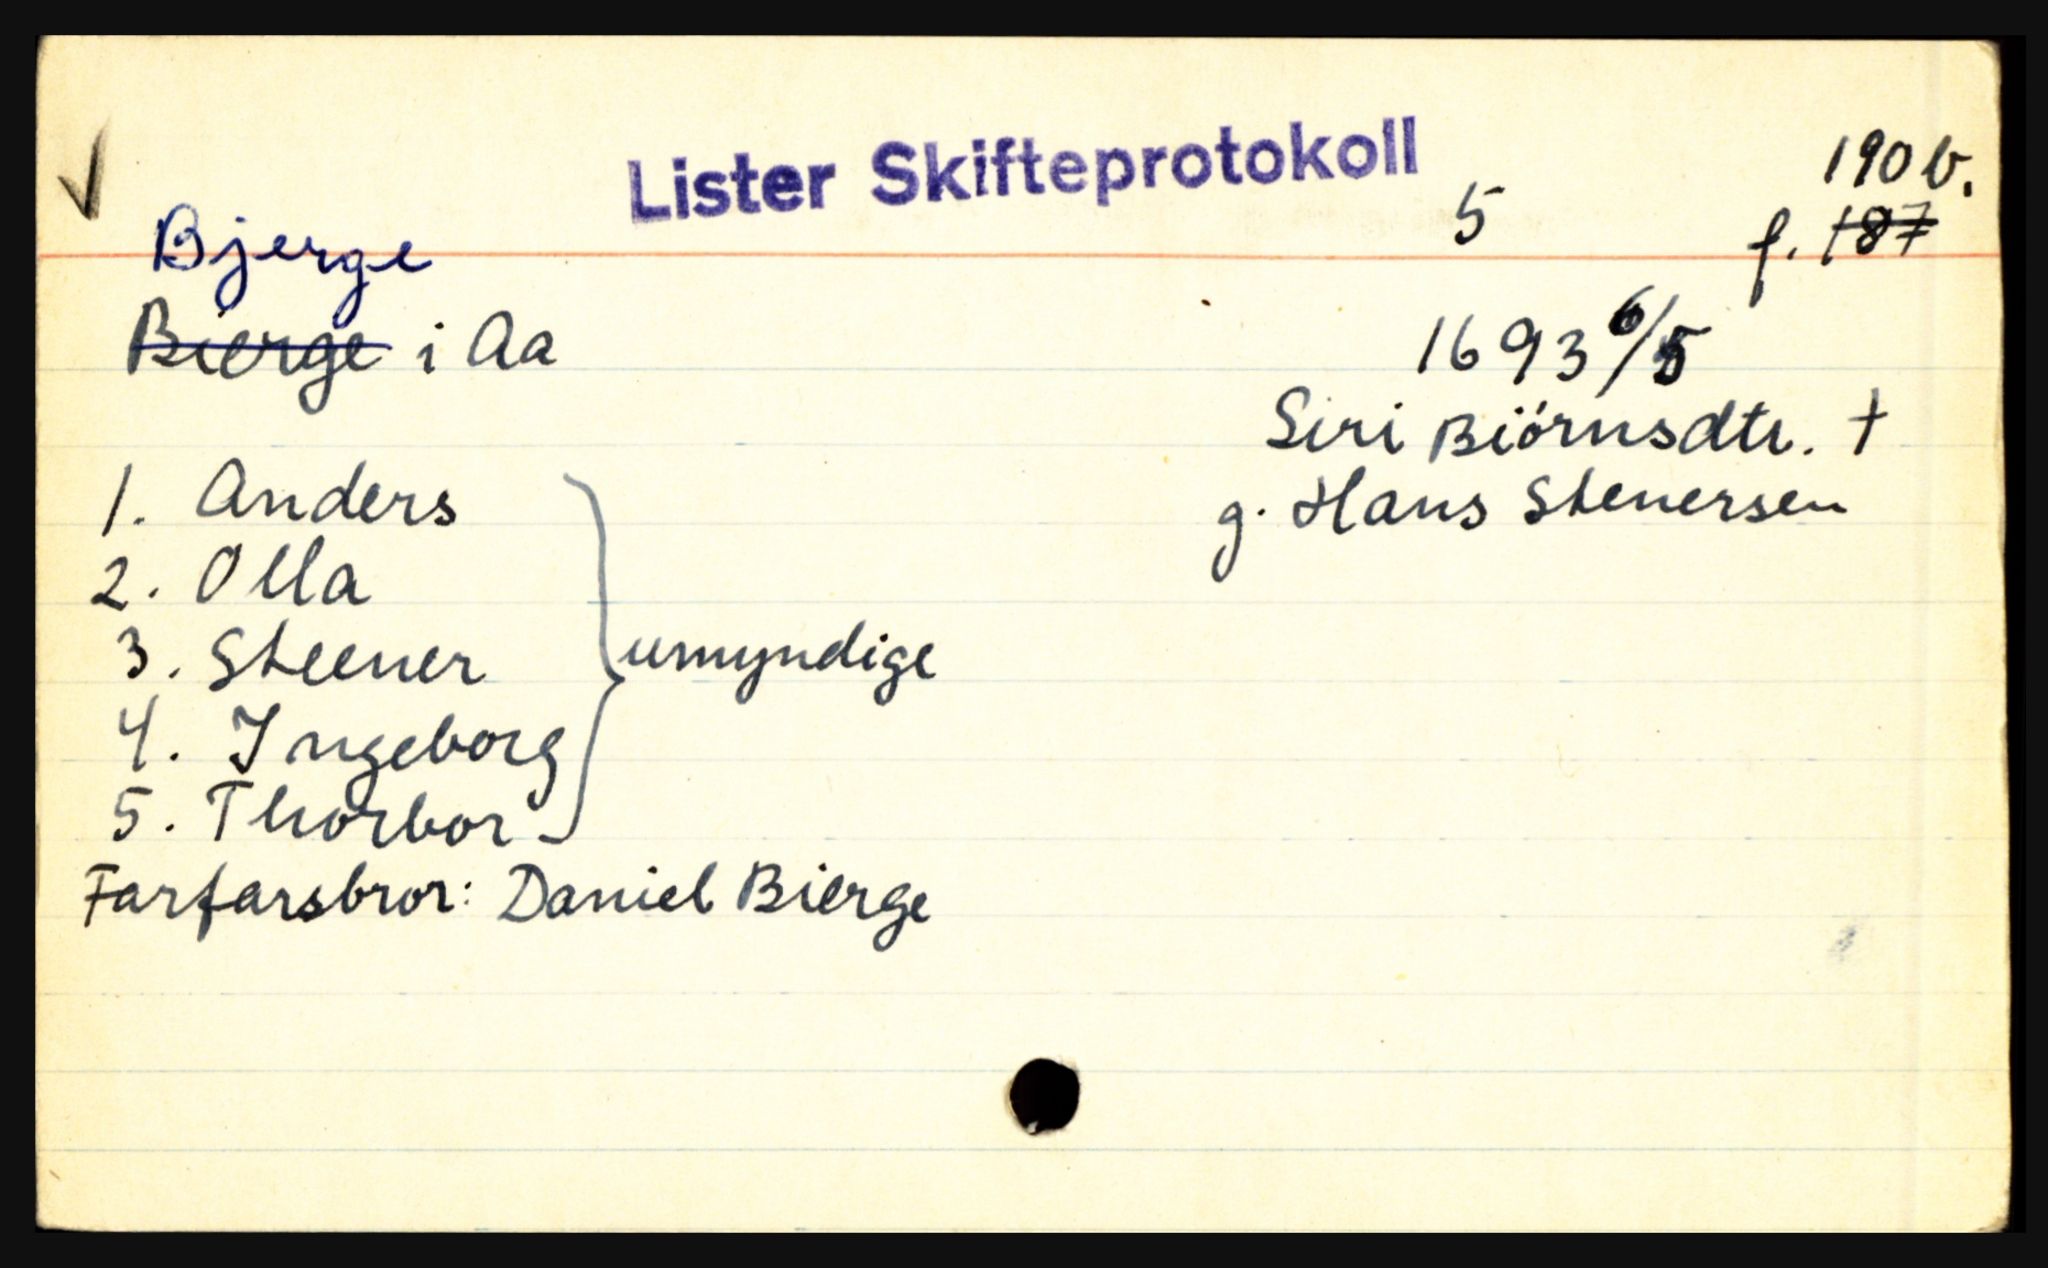 ✓
Lister Skifteprotokoll 5 190 b.
f. ~~187~~
Bjerge
~~Bierge~~ i Aa
1693 6/5
Siri Biörnsdtr. †
g. Hans Stenersen
1. Anders
2. Olla
3. Steener
4. Ingeborg
5. Thorbor
umyndige
Farfarsbror: Daniel Bierge